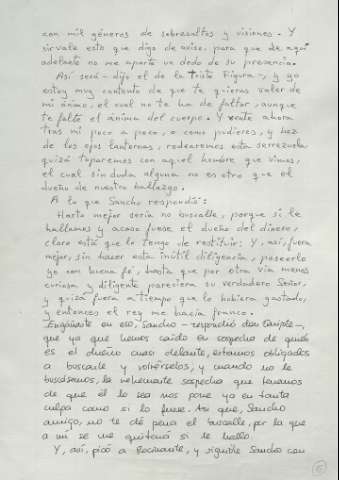 con mil géneros de sobresaltos y visiones. Y
sírvale esto que digo de aviso, para que de aquí
adelante no me aparte un dedo de su presencia.
Así será - dijo el de la Triste Figura -, y yo
estoy muy contento de que te quieras valer de
mi ánimo, el cual no te ha de faltar, aunque
te falte el ánima del cuerpo. Y vente ahora
tras mí poco a poco, o como pudieres, y haz
de los ojos lanternas, rodearemos esta serrezuela:
quizá toparemos con aquel hombre que vimos,
el cual sin duda alguna no es otro que el
dueño de nuestro hallazgo.
A lo que Sancho respondió:
Harto mejor sería no buscalle, porque si le
hallamos y acaso fuese el dueño del dinero,
claro está que lo tengo de restituir: Y, así, fuera
mejor, sin hacer esta inútil diligencia, poseerlo
yo con buena fé, hasta que por otra vía menos
curiosa y diligente pareciera su verdadero Señor,
y quizá fuera a tiempo que lo hubiera gastado,
y entonces el rey me hacía franco.
Engáñaste en eso, Sancho - respondió don Quijote -,
que ya que hemos caído en sospecha de quién
es el dueño cuasi delante, estamos obligados
a buscarle y volvérselos; y cuando no le
buscásemos, la vehemente sospecha que tenemos
de que él lo sea nos pone ya en tanta
culpa como si lo fuese. Así que, Sancho
amigo, no te dé pena el buscalle, por la que
a mí se me quitará si le hallo.
Y, así, picó a Rocinante, y siguióle Sancho con